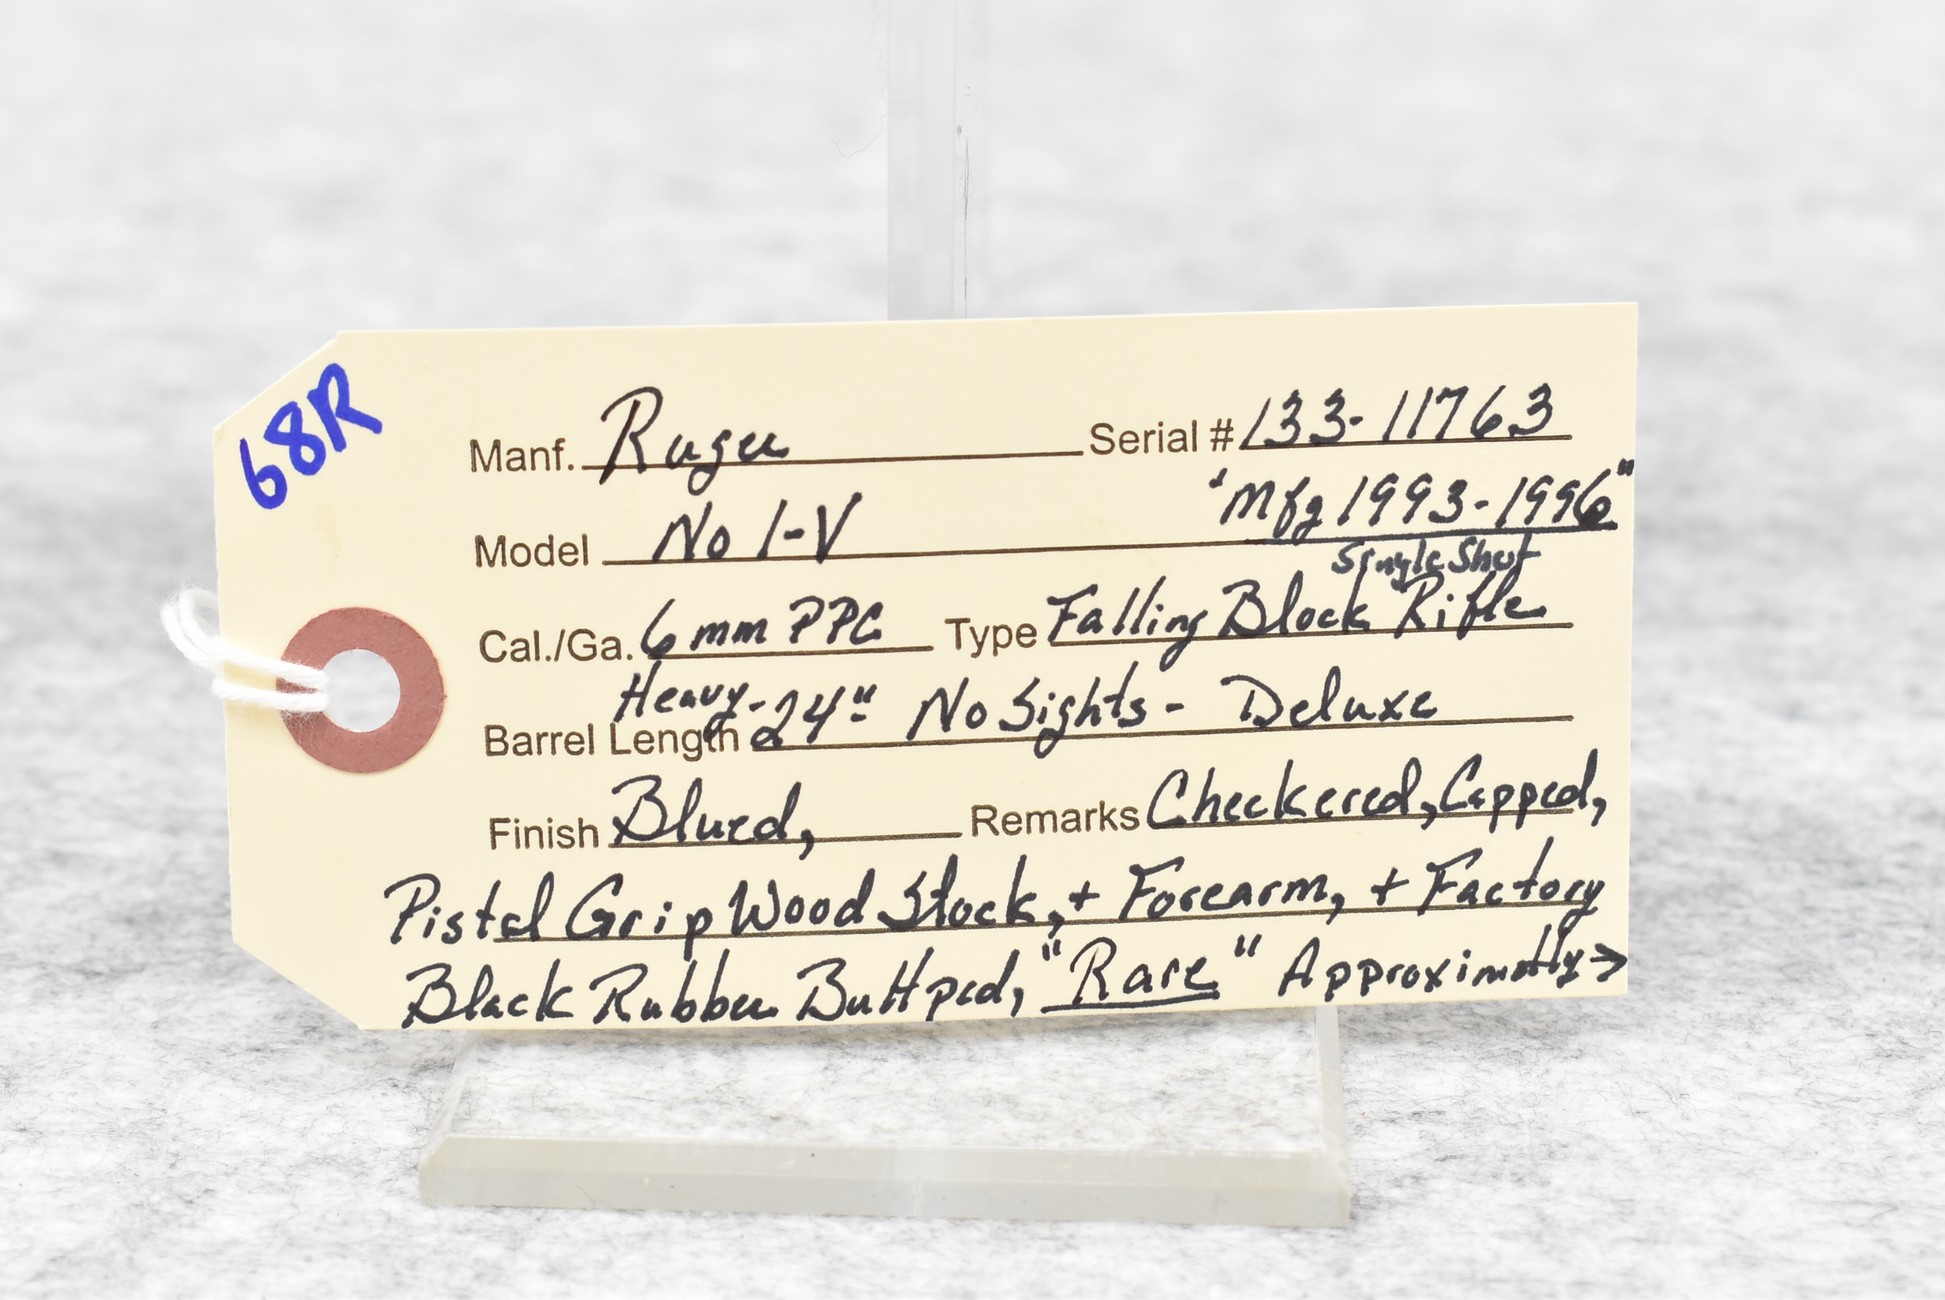 68R
Manf. Ruger Serial # 133-11763
Model No 1-V "Mfg 1993-1996"
Single Shot
Cal./Ga. 6mm PPC Type Falling Block Rifle
Heavy-
Barrel Length 24" No Sights - Deluxe
Finish Blued, Remarks Checkered, Capped,
Pistol Grip Wood Stock, + Forearm, + Factory
Black Rubber Buttpad, "Rare" Approximatly →